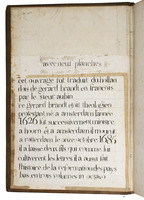 avec neuf planches
cet ouvrage fut traduit du hollan
dois de gerard brandt en francois
par le sieur aubin
ce gerard brandt etoit theologien
protestant né a amsterdam l'annee
1626 fut successivement ministre
a hoorn, et a amsterdam il mourut
a roterdam le onze octobre 1685
il a laissé deux fils qui comme lui
cultiverent les lettres il a aussi fait
l'histoire de la reformation des pays
bas en trois volumes in octavo